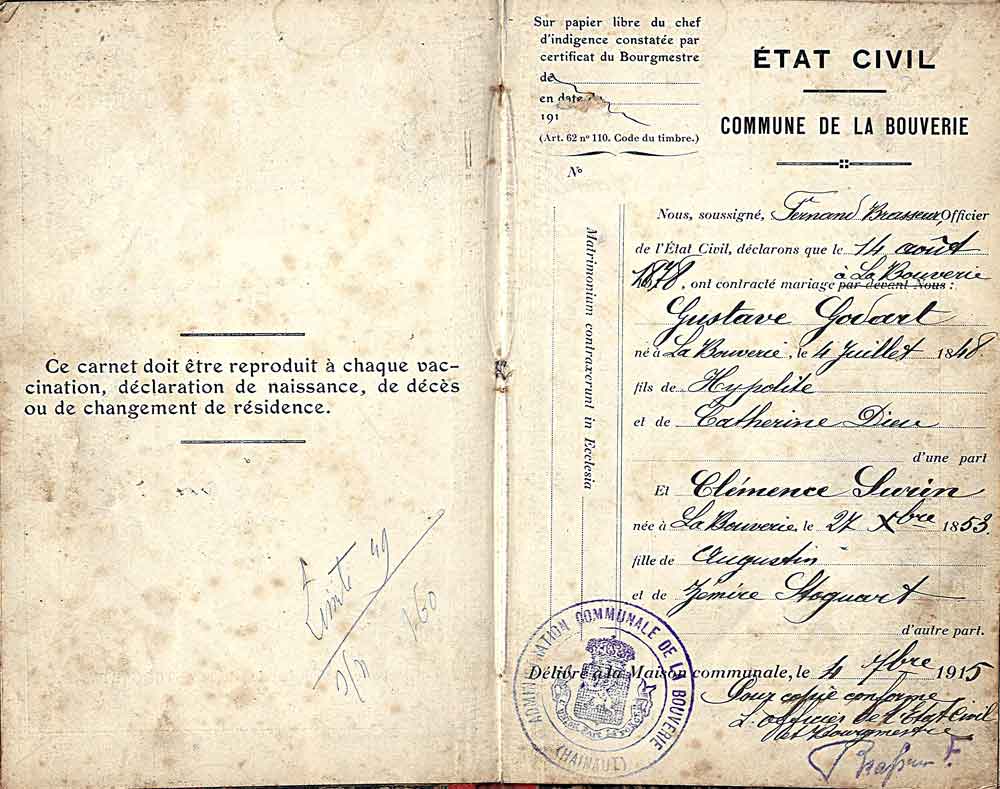 Ce carnet doit être reproduit à chaque vac-
cination, déclaration de naissance, de décès
ou de changement de résidence.
Limite 49
Sur papier libre du chef
d'indigence constatée par
certificat du Bourgmestre
de
en date du
191
(Art. 62 nº 110. Code du timbre.)
Nº
Matrimonium contraxerunt in Ecclesia
ÉTAT CIVIL
COMMUNE DE LA BOUVERIE
Nous, soussigné, Fernand Brasseur, Officier
de l'État Civil, déclarons que le 14 août
à La Bouverie
1878, ont contracté mariage par devant Nous :
Gustave Godart
né à La Bouverie, le 4 Juillet 1848
fils de Hypolite
et de Catherine Dieu
d'une part
Et Clémence Surin
née à La Bouverie, le 27 Xbre 1853.
fille de Augustin
et de Zémire Stoquart
d'autre part.
Délibré à la Maison communale, le 4 7bre 1915
Pour copie conforme
L'officier de l'Etat Civil
et Bourgmestre
Brasseur F.
ADMINISTRATION COMMUNALE DE LA BOUVERIE
(HAINAUT)